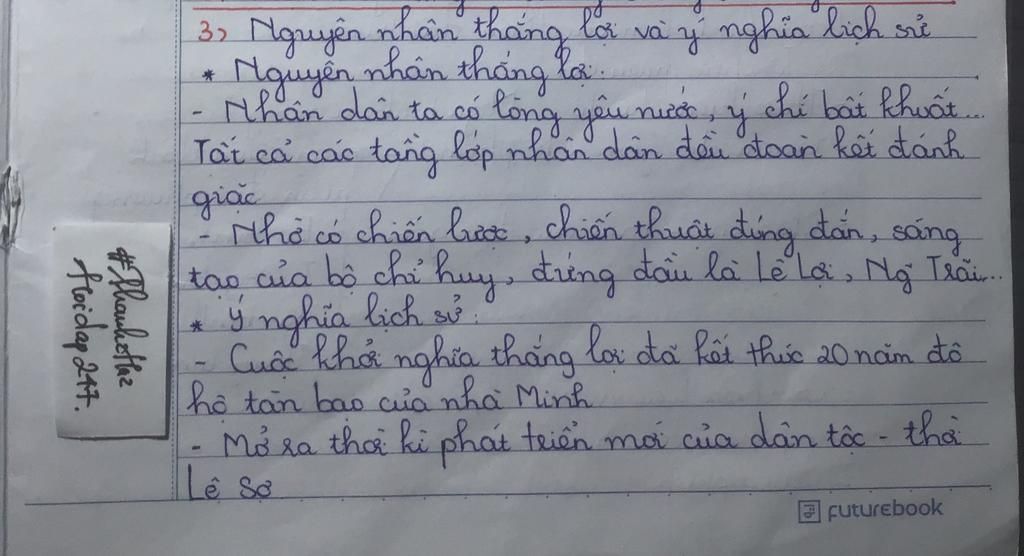 3) Nguyên nhân thắng lợi và ý nghĩa lịch sử
* Nguyên nhân thắng lợi:
- Nhân dân ta có lòng yêu nước, ý chí bất khuất...
Tất cả các tầng lớp nhân dân đều đoàn kết đánh
giặc
- Nhờ có chiến lược, chiến thuật đúng đắn, sáng
tạo của bộ chỉ huy, đứng đầu là Lê Lợi, Ng Trãi...
* Ý nghĩa lịch sử:
- Cuộc khởi nghĩa thắng lợi đã kết thúc 20 năm đô
hộ tàn bạo của nhà Minh
- Mở ra thời kì phát triển mới của dân tộc - thời
Lê Sơ
hoidap247.
FUTUREBOOK